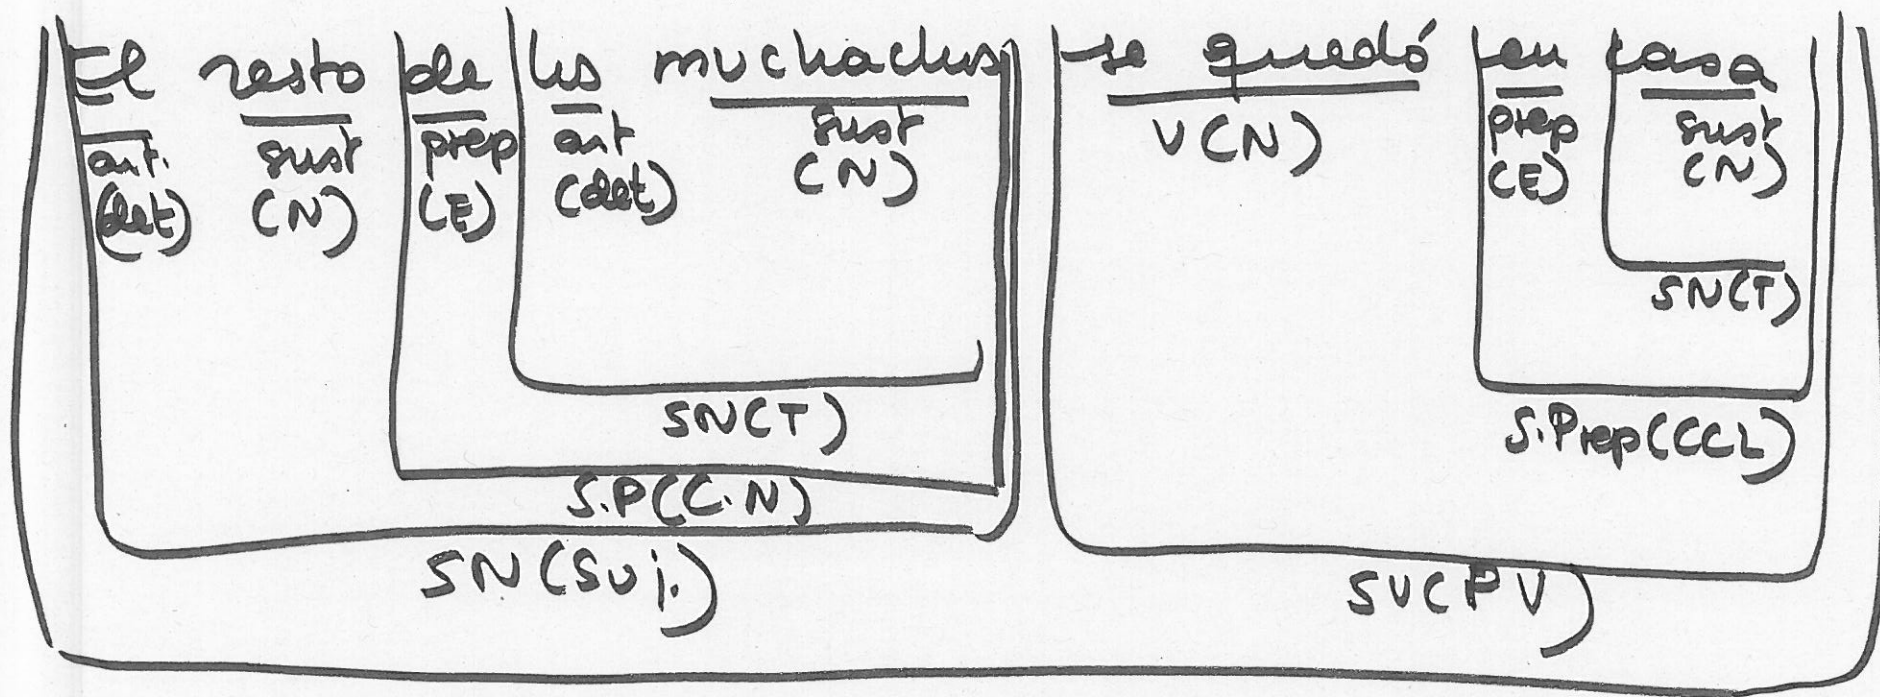 El resto de los muchachos se quedó en casa
art. sust prep art sust V(N) prep sust
(det) (N) (E) (det) (N) (E) (N)
SN(T)
SN(T) S.Prep(CCL)
S.P(C.N)
SN(Suj.) SV(PV)